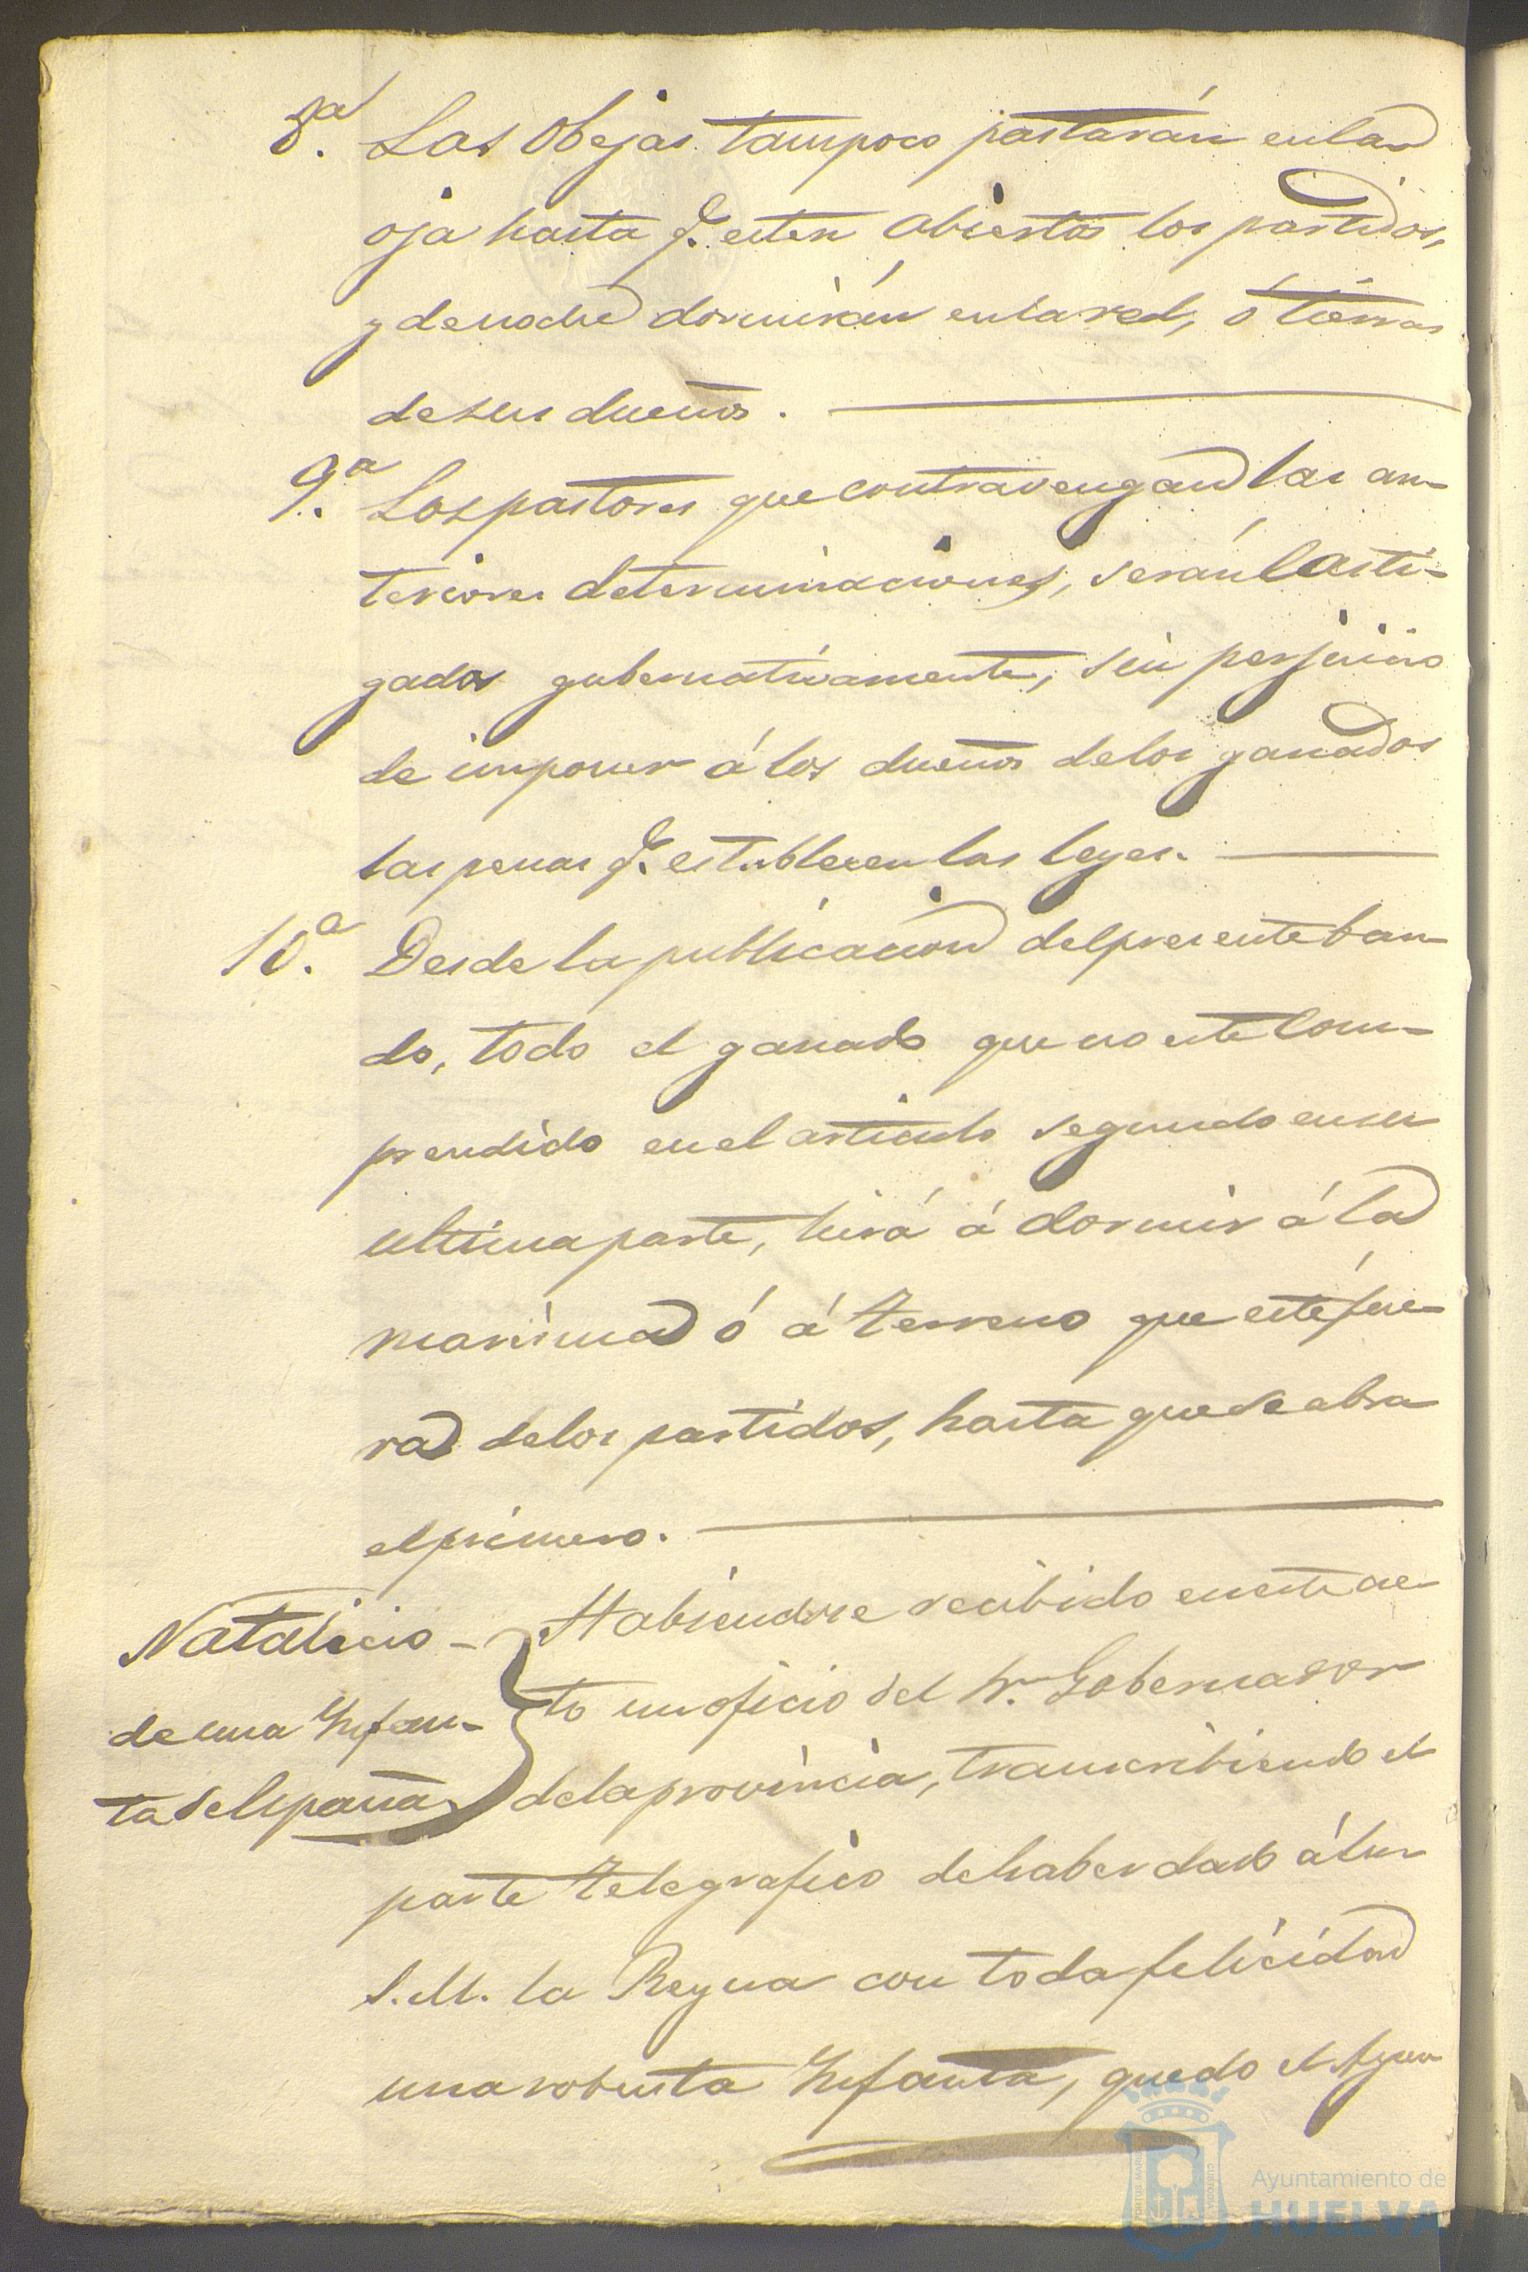 8.ª Las Obejas tampoco pastarán en la
oja hasta q.e esten abiertos los partidos,
y de noche dormirán en la red, ó tierras
de sus dueños.
9.ª Los pastores que contravengan las an-
teriores determinaciones, serán Casti-
gados gubernativamente, sin perjuicio
de imponer á los dueños de los ganados
las penas q.e establecen las leyes.
10.ª Desde la publicacion del presente ban-
do, todo el ganado que no esté Com-
prendido en el articulo segundo en su
ultima parte, hirá á dormir á la
marisma ó á terreno que esté fue-
ra de los partidos, hasta que se abra
el primero.
Natalicio
de una Ynfan-
ta de España
Habiendose recibido en este ac-
to un oficio del Sr. Gobernador
de la provincia, transcribiendo el
parte telegrafico de haber dado á luz
S.M. la Reyna con toda felicidad
una robusta Ynfanta, quedo el Ayun
Ayuntamiento de
HUELVA